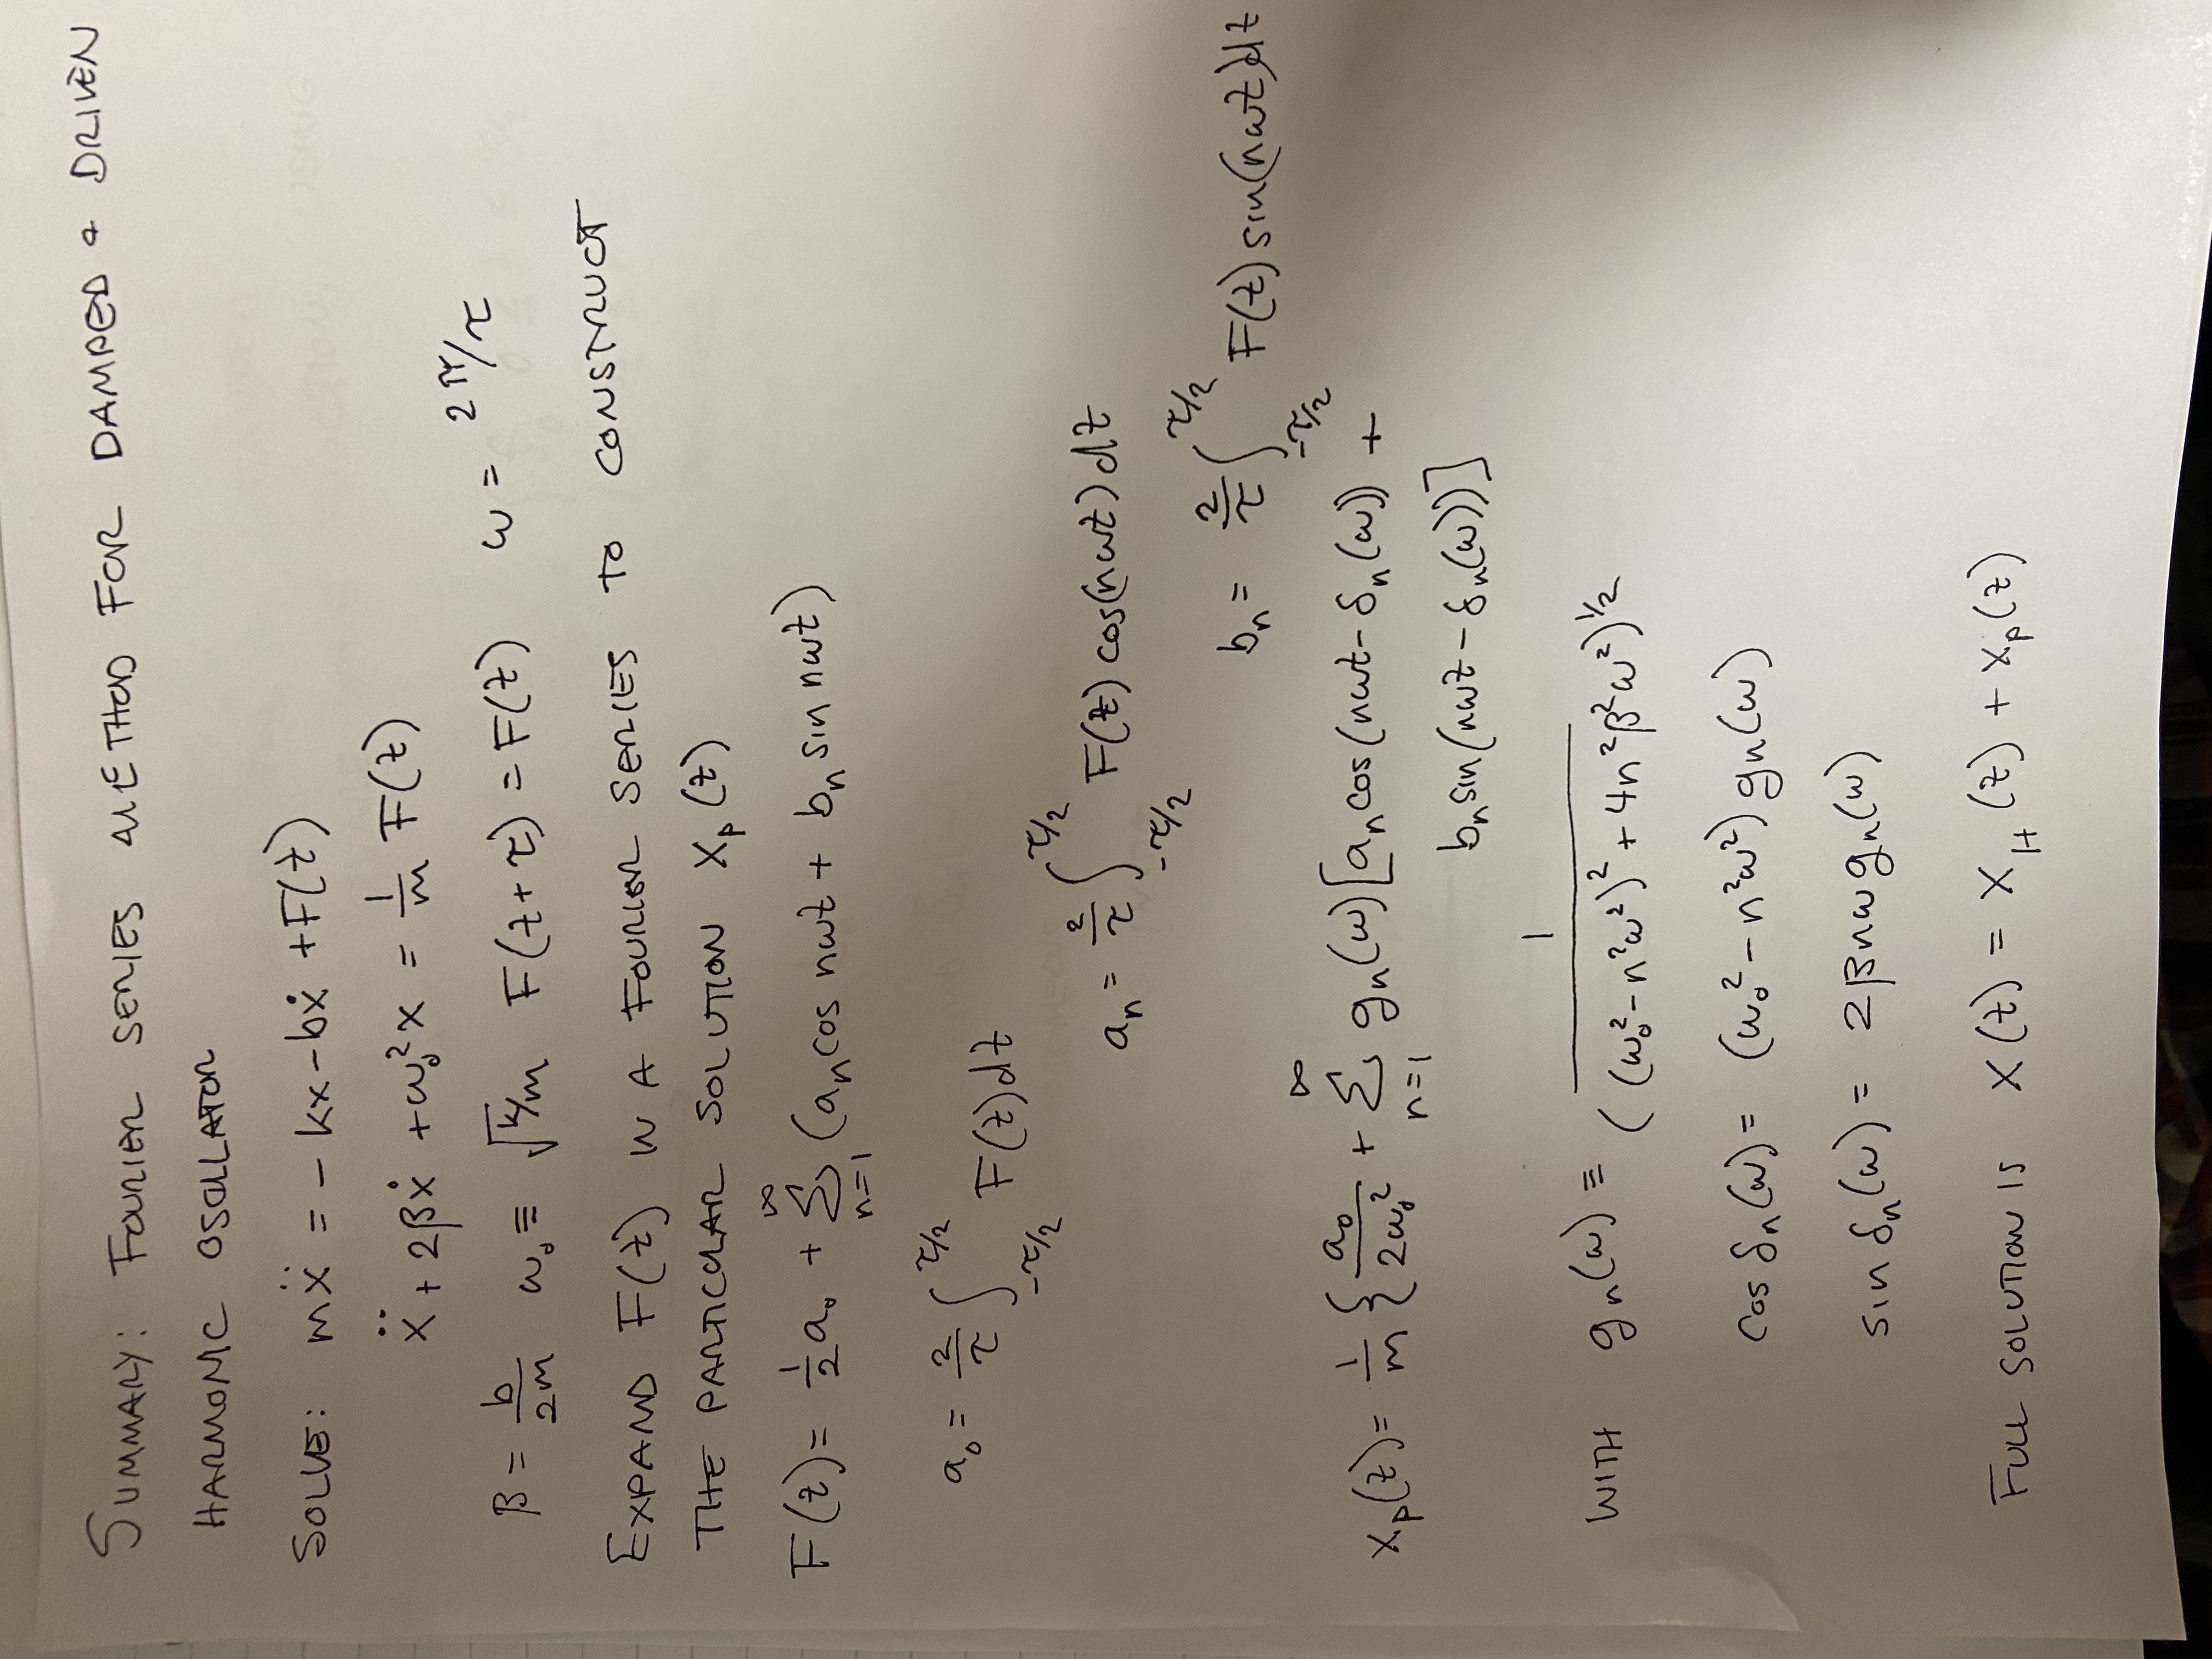 SUMMARY: FOURIER SERIES METHOD FOR DAMPED + DRIVEN
HARMONIC OSCILLATOR
SOLVE: mẍ = - kx - bẋ + F(t)
ẍ + 2βẋ + ω₀²x = 1/m F(t)
β = b/2m ω₀ ≡ √k/m F(t+τ) = F(t) ω = 2π/τ
EXPAND F(t) IN A FOURIER SERIES TO CONSTRUCT
THE PARTICULAR SOLUTION xₚ(t)
F(t) = 1/2 a₀ + ∑_{n=1}^{∞} (aₙ cos nωt + bₙ sin nωt)
a₀ = 2/τ ∫_{-τ/2}^{τ/2} F(t) dt
aₙ = 2/τ ∫_{-τ/2}^{τ/2} F(t) cos(nωt) dt
bₙ = 2/τ ∫_{-τ/2}^{τ/2} F(t) sin(nωt) dt
xₚ(t) = 1/m { a₀/2ω₀² + ∑_{n=1}^{∞} gₙ(ω) [aₙ cos(nωt - δₙ(ω)) +
bₙ sin(nωt - δₙ(ω))]
WITH gₙ(ω) ≡ 1/((ω₀² - n²ω²)² + 4n²β²ω²)^{1/2}
cos δₙ(ω) = (ω₀² - n²ω²) gₙ(ω)
sin δₙ(ω) = 2βnω gₙ(ω)
FULL SOLUTION IS x(t) = x_H(t) + xₚ(t)